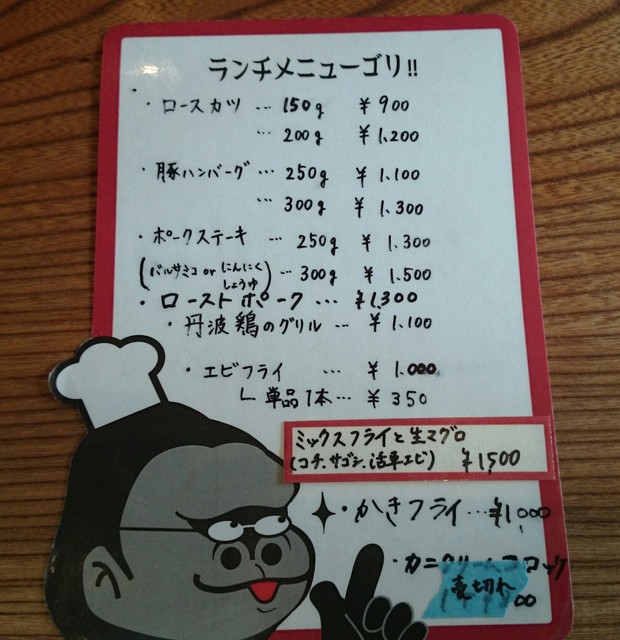 ランチメニューゴリ!!
・ロースカツ … 150g ¥900
… 200g ¥1,200
・豚ハンバーグ … 250g ¥1,100
… 300g ¥1,300
・ポークステーキ … 250g ¥1,300
(バルサミコ or にんにくしょうゆ) … 300g ¥1,500
・ローストポーク … ¥1,300
・丹波鶏のグリル … ¥1,100
・エビフライ … ¥1,000
└ 単品1本… ¥350
ミックスフライと生マグロ
(コチ、サゴシ、活車エビ) ¥1,500
・かきフライ…¥1,000
・カニクリームコロッケ
売切れ